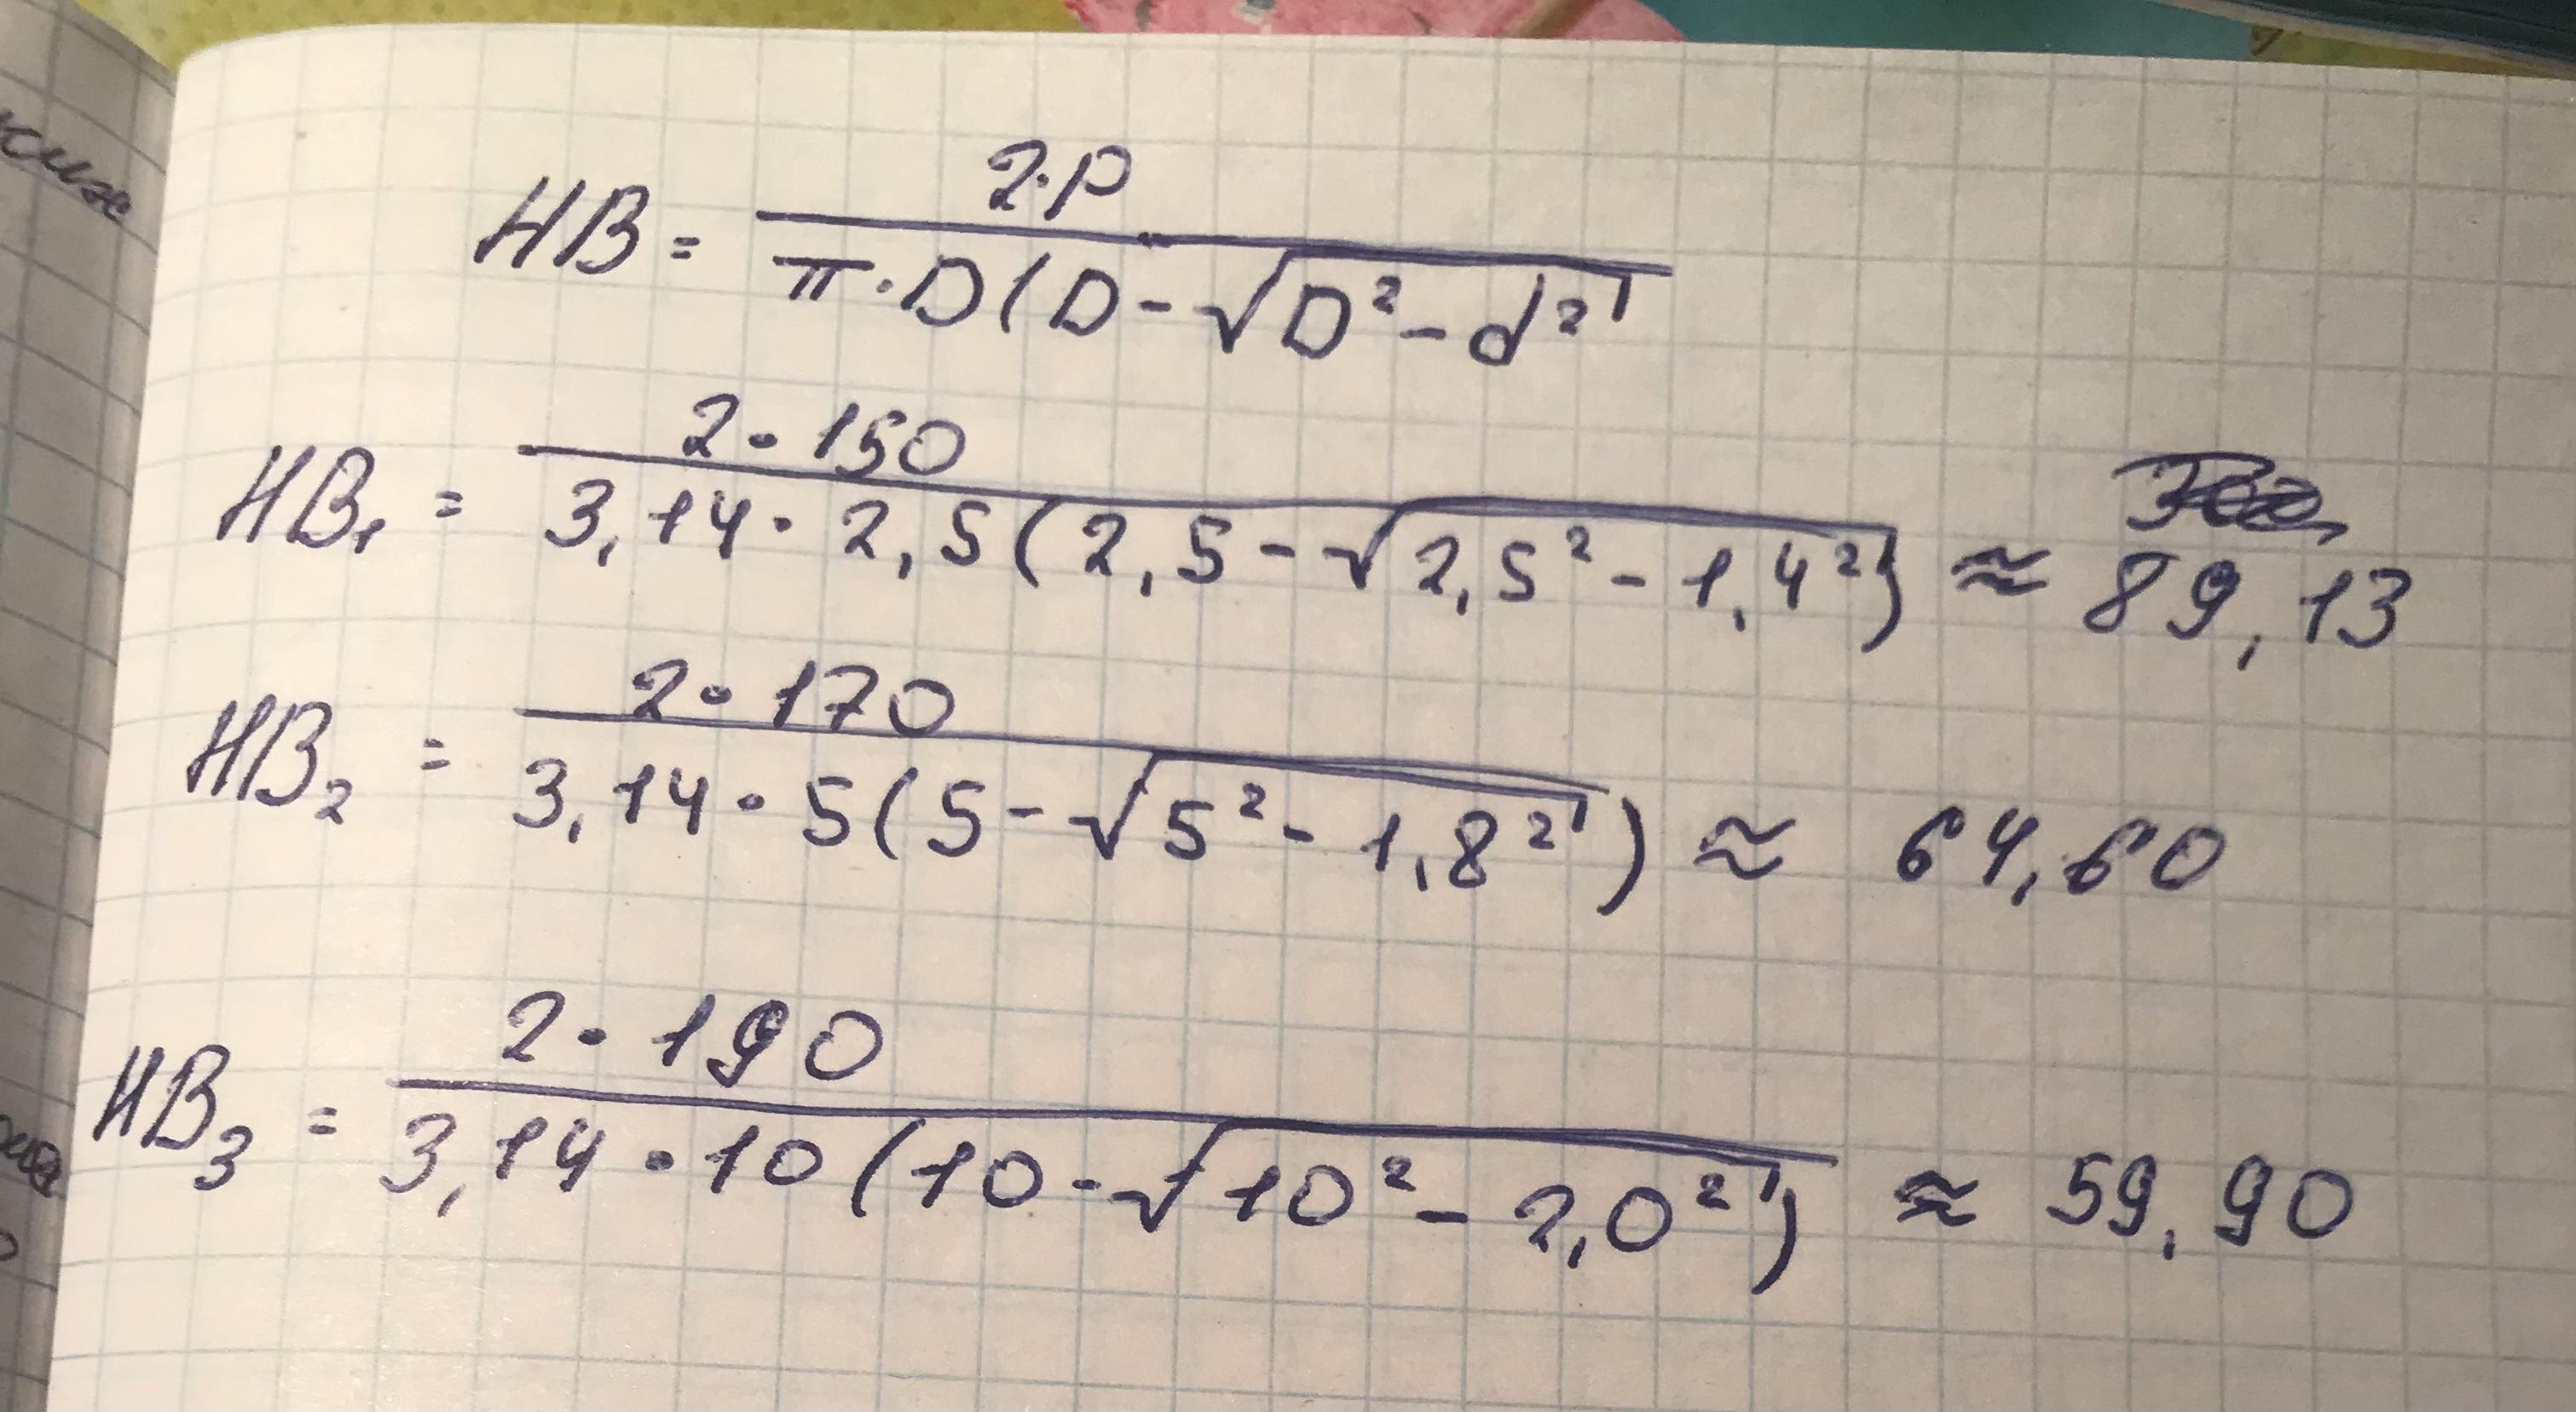 HB = 2·P / π·D(D-√D²-d²
HB₁ = 2·150 / 3,14·2,5(2,5-√2,5²-1,4²) ≈ 89,13
HB₂ = 2·170 / 3,14·5(5-√5²-1,8²) ≈ 64,60
HB₃ = 2·190 / 3,14·10(10-√10²-2,0²) ≈ 59,90